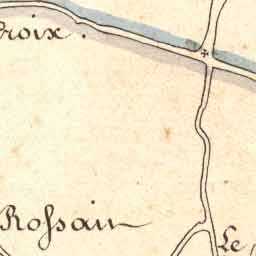 roix.
Roſsain
Le